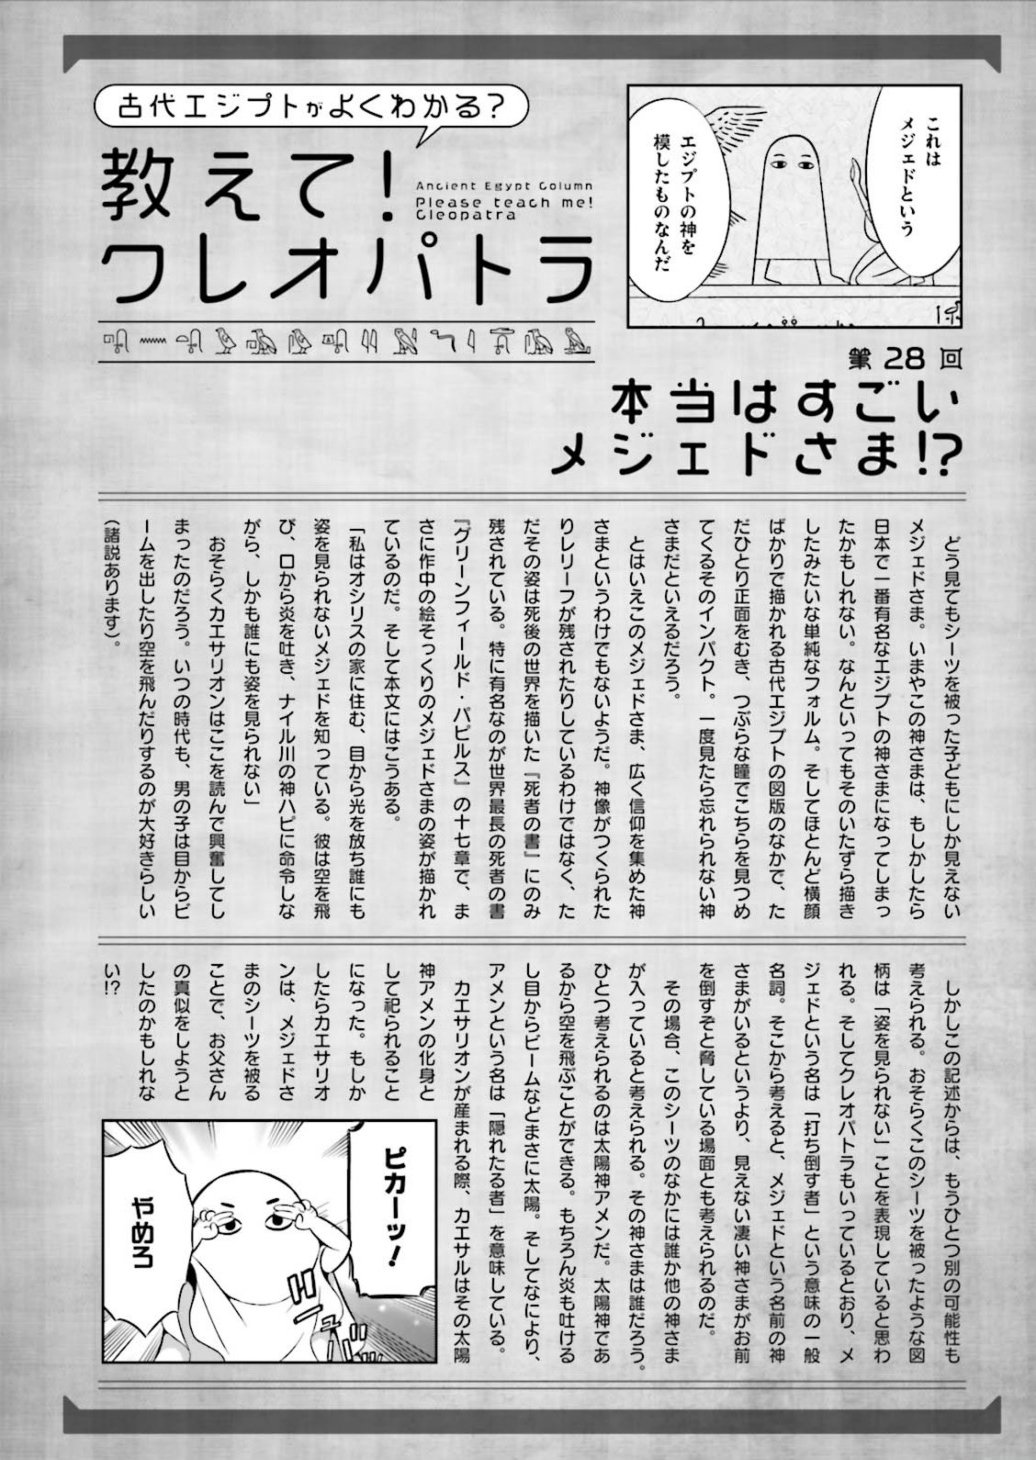 古代エジプトがよくわかる?
教えて!
Ancient Egypt Column
Please teach me!
Cleopatra
クレオパトラ
これは
メジェドという
エジプトの神を
模したものなんだ
第28回
本当はすごい
メジェドさま!?
どう見てもシーツを被った子どもにしか見えない
メジェドさま。いまやこの神さまは、もしかしたら
日本で一番有名なエジプトの神さまになってしまっ
たかもしれない。なんといってもそのいたずら描き
したみたいな単純なフォルム。そしてほとんど横顔
ばかりで描かれる古代エジプトの図版のなかで、た
だひとり正面をむき、つぶらな瞳でこちらを見つめ
てくるそのインパクト。一度見たら忘れられない神
さまだといえるだろう。
とはいえこのメジェドさま、広く信仰を集めた神
さまというわけでもないようだ。神像がつくられた
りレリーフが残されたりしているわけではなく、た
だその姿は死後の世界を描いた『死者の書』にのみ
残されている。特に有名なのが世界最長の死者の書
『グリーンフィールド・パピルス』の十七章で、ま
さに作中の絵そっくりのメジェドさまの姿が描かれ
ているのだ。そして本文にはこうある。
「私はオシリスの家に住む、目から光を放ち誰にも
姿を見られないメジェドを知っている。彼は空を飛
び、口から炎を吐き、ナイル川の神ハピに命令しな
がら、しかも誰にも姿を見られない」
おそらくカエサリオンはここを読んで興奮してし
まったのだろう。いつの時代も、男の子は目からビ
ームを出したり空を飛んだりするのが大好きらしい
(諸説あります)。
しかしこの記述からは、もうひとつ別の可能性も
考えられる。おそらくこのシーツを被ったような図
柄は「姿を見られない」ことを表現していると思わ
れる。そしてクレオパトラもいっているとおり、メ
ジェドという名は「打ち倒す者」という意味の一般
名詞。そこから考えると、メジェドという名前の神
さまがいるというより、見えない凄い神さまがお前
を倒すぞと脅している場面とも考えられるのだ。
その場合、このシーツのなかには誰か他の神さま
が入っていると考えられる。その神さまは誰だろう。
ひとつ考えられるのは太陽神アメンだ。太陽神であ
るから空を飛ぶことができる。もちろん炎も吐ける
し目からビームなどまさに太陽。そしてなにより、
アメンという名は「隠れたる者」を意味している。
カエサリオンが産まれる際、カエサルはその太陽
神アメンの化身と
して祀られること
になった。もしか
したらカエサリオ
ンは、メジェドさ
まのシーツを被る
ことで、お父さん
の真似をしようと
したのかもしれな
い!?
ピカーッ!
やめろ